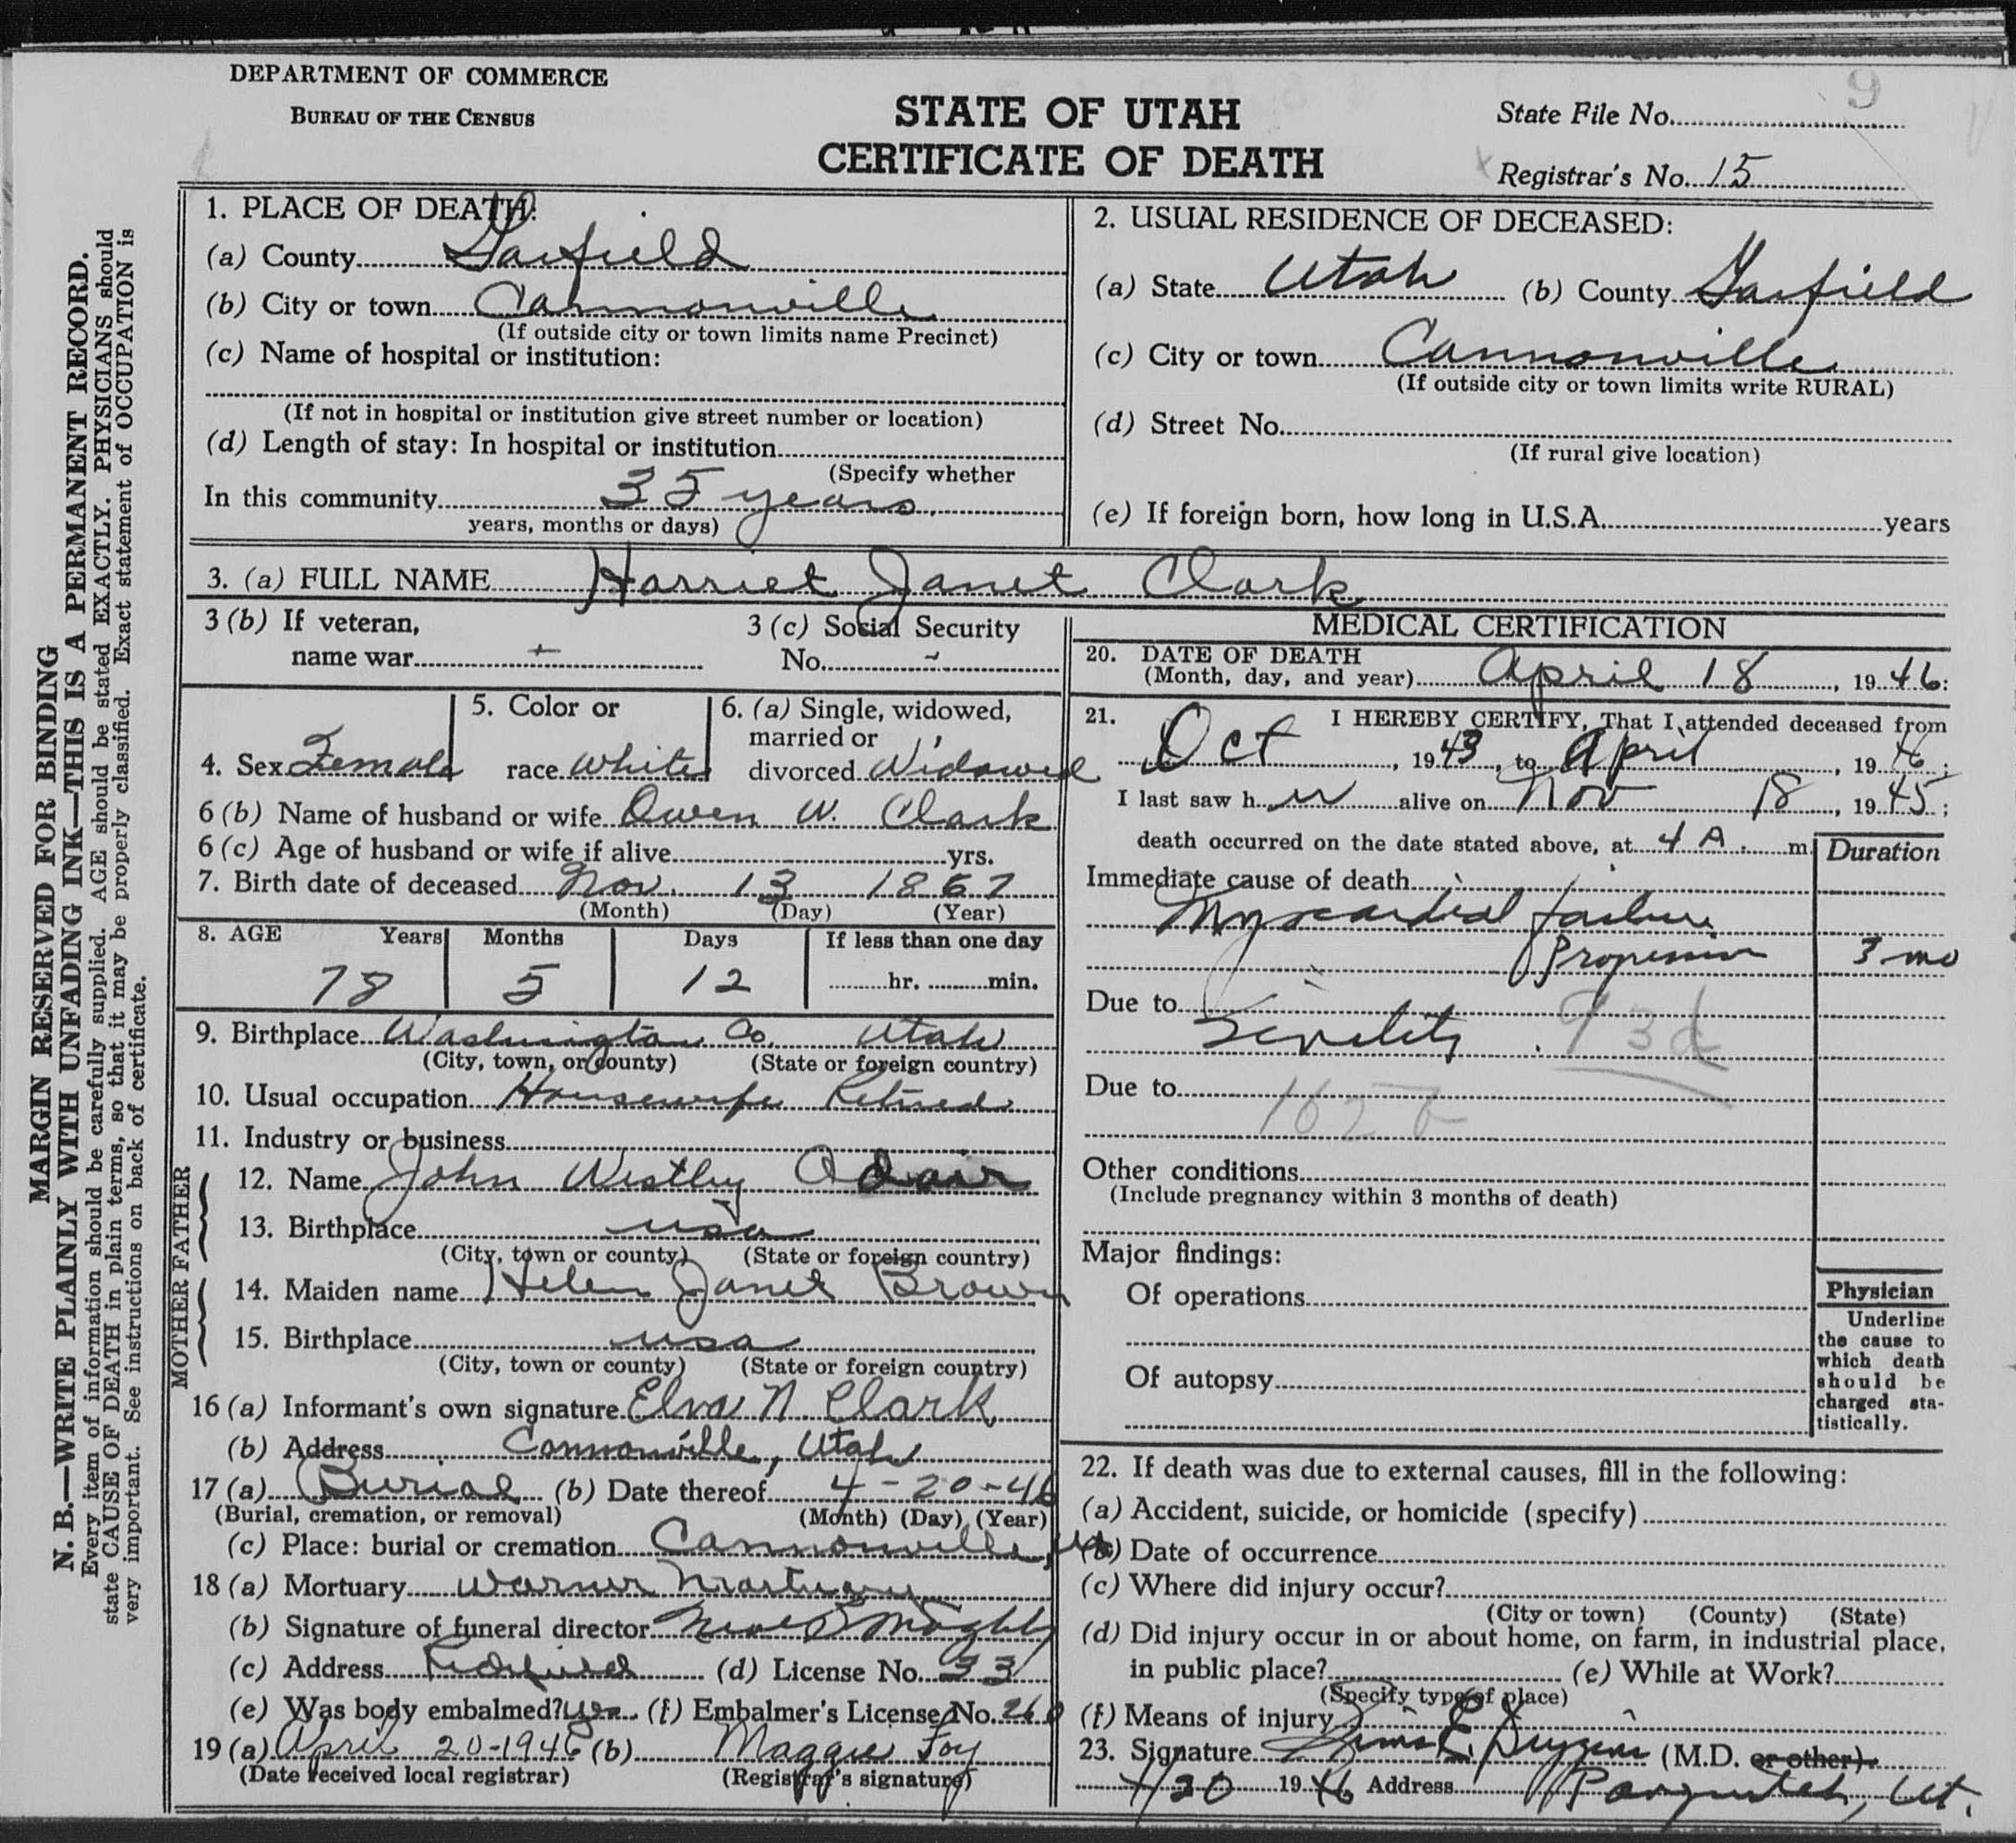 DEPARTMENT OF COMMERCE
BUREAU OF THE CENSUS
STATE OF UTAH
CERTIFICATE OF DEATH
State File No.
9
Registrar's No. 15
MARGIN RESERVED FOR BINDING
N. B.—WRITE PLAINLY WITH UNFADING INK—THIS IS A PERMANENT RECORD.
Every item of information should be carefully supplied. AGE should be stated EXACTLY. PHYSICIANS should
state CAUSE OF DEATH in plain terms, so that it may be properly classified. Exact statement of OCCUPATION is
very important. See instructions on back of certificate.
1. PLACE OF DEATH:
(a) County Garfield
(b) City or town Cannonville
(If outside city or town limits name Precinct)
(c) Name of hospital or institution:
(If not in hospital or institution give street number or location)
(d) Length of stay: In hospital or institution
(Specify whether
In this community 35 years
years, months or days)
2. USUAL RESIDENCE OF DECEASED:
(a) State Utah (b) County Garfield
(c) City or town Cannonville
(If outside city or town limits write RURAL)
(d) Street No.
(If rural give location)
(e) If foreign born, how long in U.S.A. years
3. (a) FULL NAME Harriet Janet Clark
3 (b) If veteran,
name war -
3 (c) Social Security
No. -
4. Sex Female
5. Color or
race White
6. (a) Single, widowed,
married or
divorced Widowed
6 (b) Name of husband or wife Owen W. Clark
6 (c) Age of husband or wife if alive yrs.
7. Birth date of deceased Nov. 13 1867
(Month) (Day) (Year)
8. AGE Years Months Days If less than one day
78 5 12 hr. min.
9. Birthplace Washington Co. Utah
(City, town, or county) (State or foreign country)
10. Usual occupation Housewife Retired
11. Industry or business
FATHER
12. Name John Westley Adair
13. Birthplace usa
(City, town or county) (State or foreign country)
MOTHER
14. Maiden name Helen Janet Brown
15. Birthplace usa
(City, town or county) (State or foreign country)
16 (a) Informant's own signature Elva N. Clark
(b) Address Cannonville, Utah
17 (a) Burial (b) Date thereof 4-20-46
(Burial, cremation, or removal) (Month) (Day) (Year)
(c) Place: burial or cremation Cannonville, Ut
18 (a) Mortuary Warner Mortuary
(b) Signature of funeral director
(c) Address Richfield (d) License No. 33
(e) Was body embalmed? yes (f) Embalmer's License No. 260
19 (a) April 20-1946 (b) Maggie Foy
(Date received local registrar) (Registrar's signature)
MEDICAL CERTIFICATION
20. DATE OF DEATH
(Month, day, and year) April 18, 1946:
21. I HEREBY CERTIFY, That I attended deceased from
Oct, 1943, to April, 1946;
I last saw her alive on Nov 18, 1945;
death occurred on the date stated above, at 4 A. m.
Duration
Immediate cause of death
Myocardial failure
Progressive 3 mo
Due to
Senility 93d
Due to
162 b
Other conditions
(Include pregnancy within 3 months of death)
Major findings:
Of operations
Of autopsy
Physician
Underline
the cause to
which death
should be
charged sta-
tistically.
22. If death was due to external causes, fill in the following:
(a) Accident, suicide, or homicide (specify)
(b) Date of occurrence
(c) Where did injury occur?
(City or town) (County) (State)
(d) Did injury occur in or about home, on farm, in industrial place,
in public place? (e) While at Work?
(Specify type of place)
(f) Means of injury
23. Signature (M.D. or other)
4/20 1946 Address Panguitch, Ut.